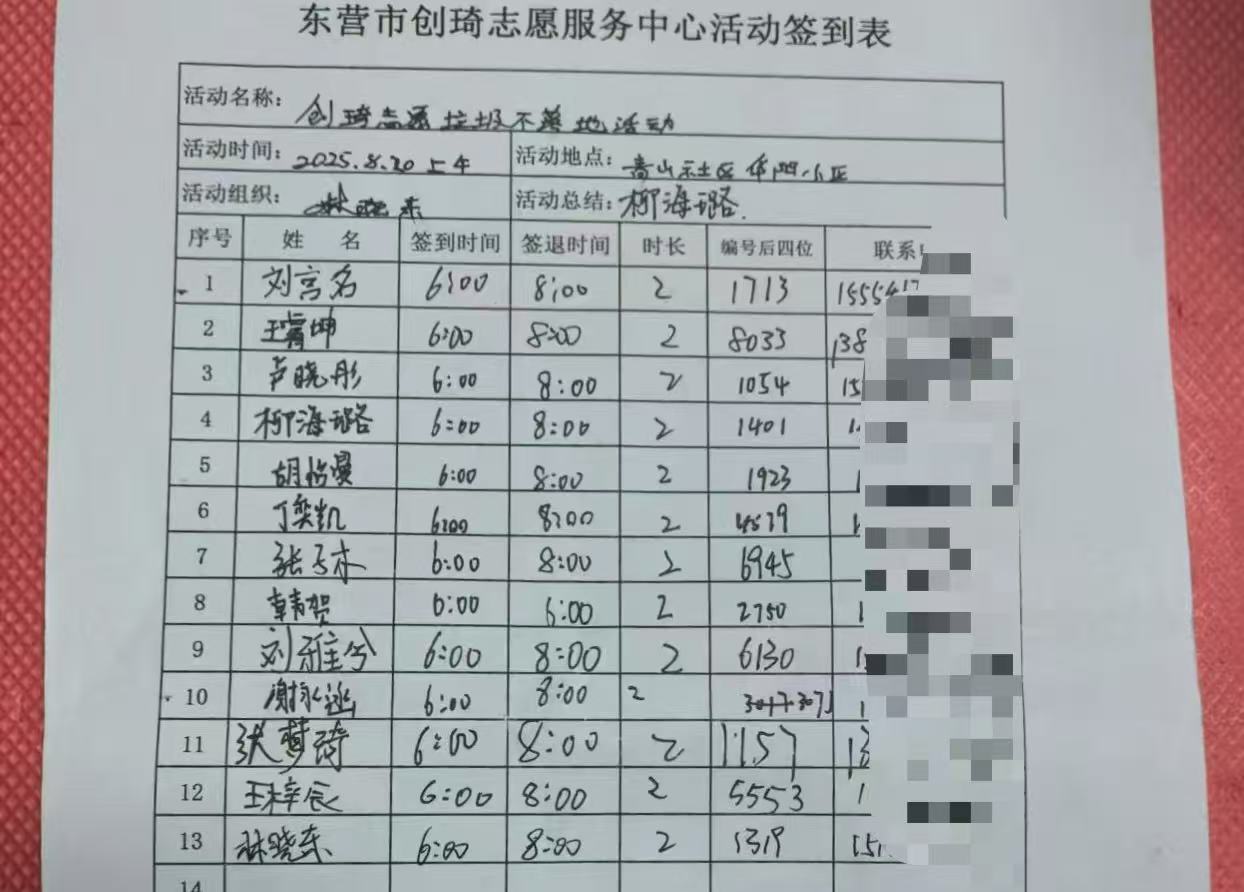 东营市创琦志愿服务中心活动签到表
活动名称: 创琦志愿垃圾不落地活动
活动时间: 2025.8.20 上午 活动地点: 青山社区 华凹小区
活动组织: 林晓东 活动总结: 柳海璐.
序号 姓 名 签到时间 签退时间 时长 编号后四位 联系
1 刘言名 6:00 8:00 2 1713 155541
2 王霄坤 6:00 8:00 2 8033 138
3 芦晓彤 6:00 8:00 2 1054 15
4 柳海璐 6:00 8:00 2 1401 1
5 胡怡漫 6:00 8:00 2 1923 1
6 丁奕凯 6:00 8:00 2 1
7 张子木 6:00 8:00 2 6945
8 韩贺 6:00 6:00 2 2750 1
9 刘雅兮 6:00 8:00 2 6130 1
10 谢 6:00 8:00 2 1
11 张梦琦 6:00 8:00 2 1157 13
12 王梓辰 6:00 8:00 2 5553 1
13 林晓东 6:00 8:00 2 1319 151
14